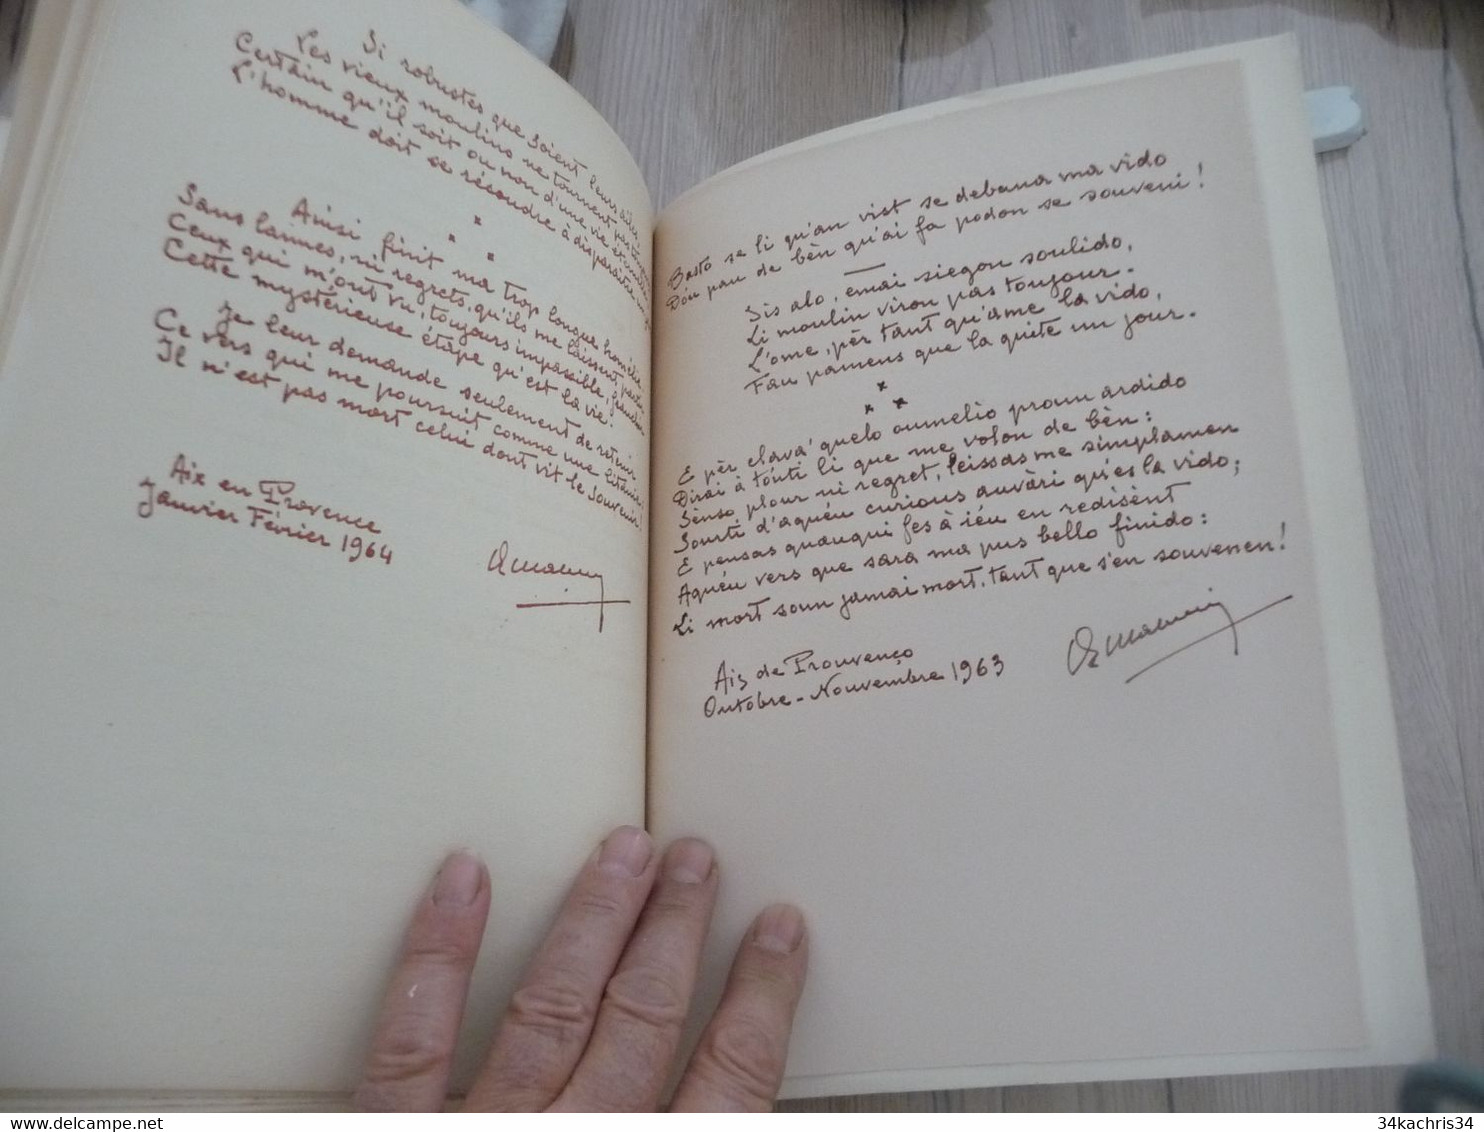 Si robustes que soient leurs ailes
Les vieux moulins ne tournent pas toujours
Certain qu'il soit ou non d'une vie éternelle
L'homme doit se résoudre à disparaître un jour
x
x x
Ainsi finit ma trop longue homélie
Sans larmes, ni regrets, qu'ils me laissent partir
Ceux qui m'ont vu, toujours impassible, franchir
Cette mystérieuse étape qu'est la vie.
Je leur demande seulement de retenir
Ce vers qui me poursuit comme une litanie:
Il n'est pas mort celui dont vit le souvenir!
Aix en Provence
Janvier Février 1964
Basto se li qu'an vist se debana ma vido
Dóu pau de bèn qu'ai fa podon se souveni!
Sis alo, emai siegon soulido,
Li moulin viron pas toujour.
L'ome, pèr tant qu'ame la vido,
Fau pamens que la quite un jour.
x
x x
E pèr clava' quelo oumelio proun ardido
Dirai à tóuti li que me volon de bèn:
Sènso plour ni regret, leissas me simplamen
Sourti d'aquéu curious auvàri qu'es la vido;
E pensas quauqui fes à iéu en redisènt
Aquéu vers que sara ma pus bello finido:
Li mort soun jamai mort, tant que s'en souvenen!
Aiz de Prouvenço
Outobre-Nouvembre 1963
34kachris34